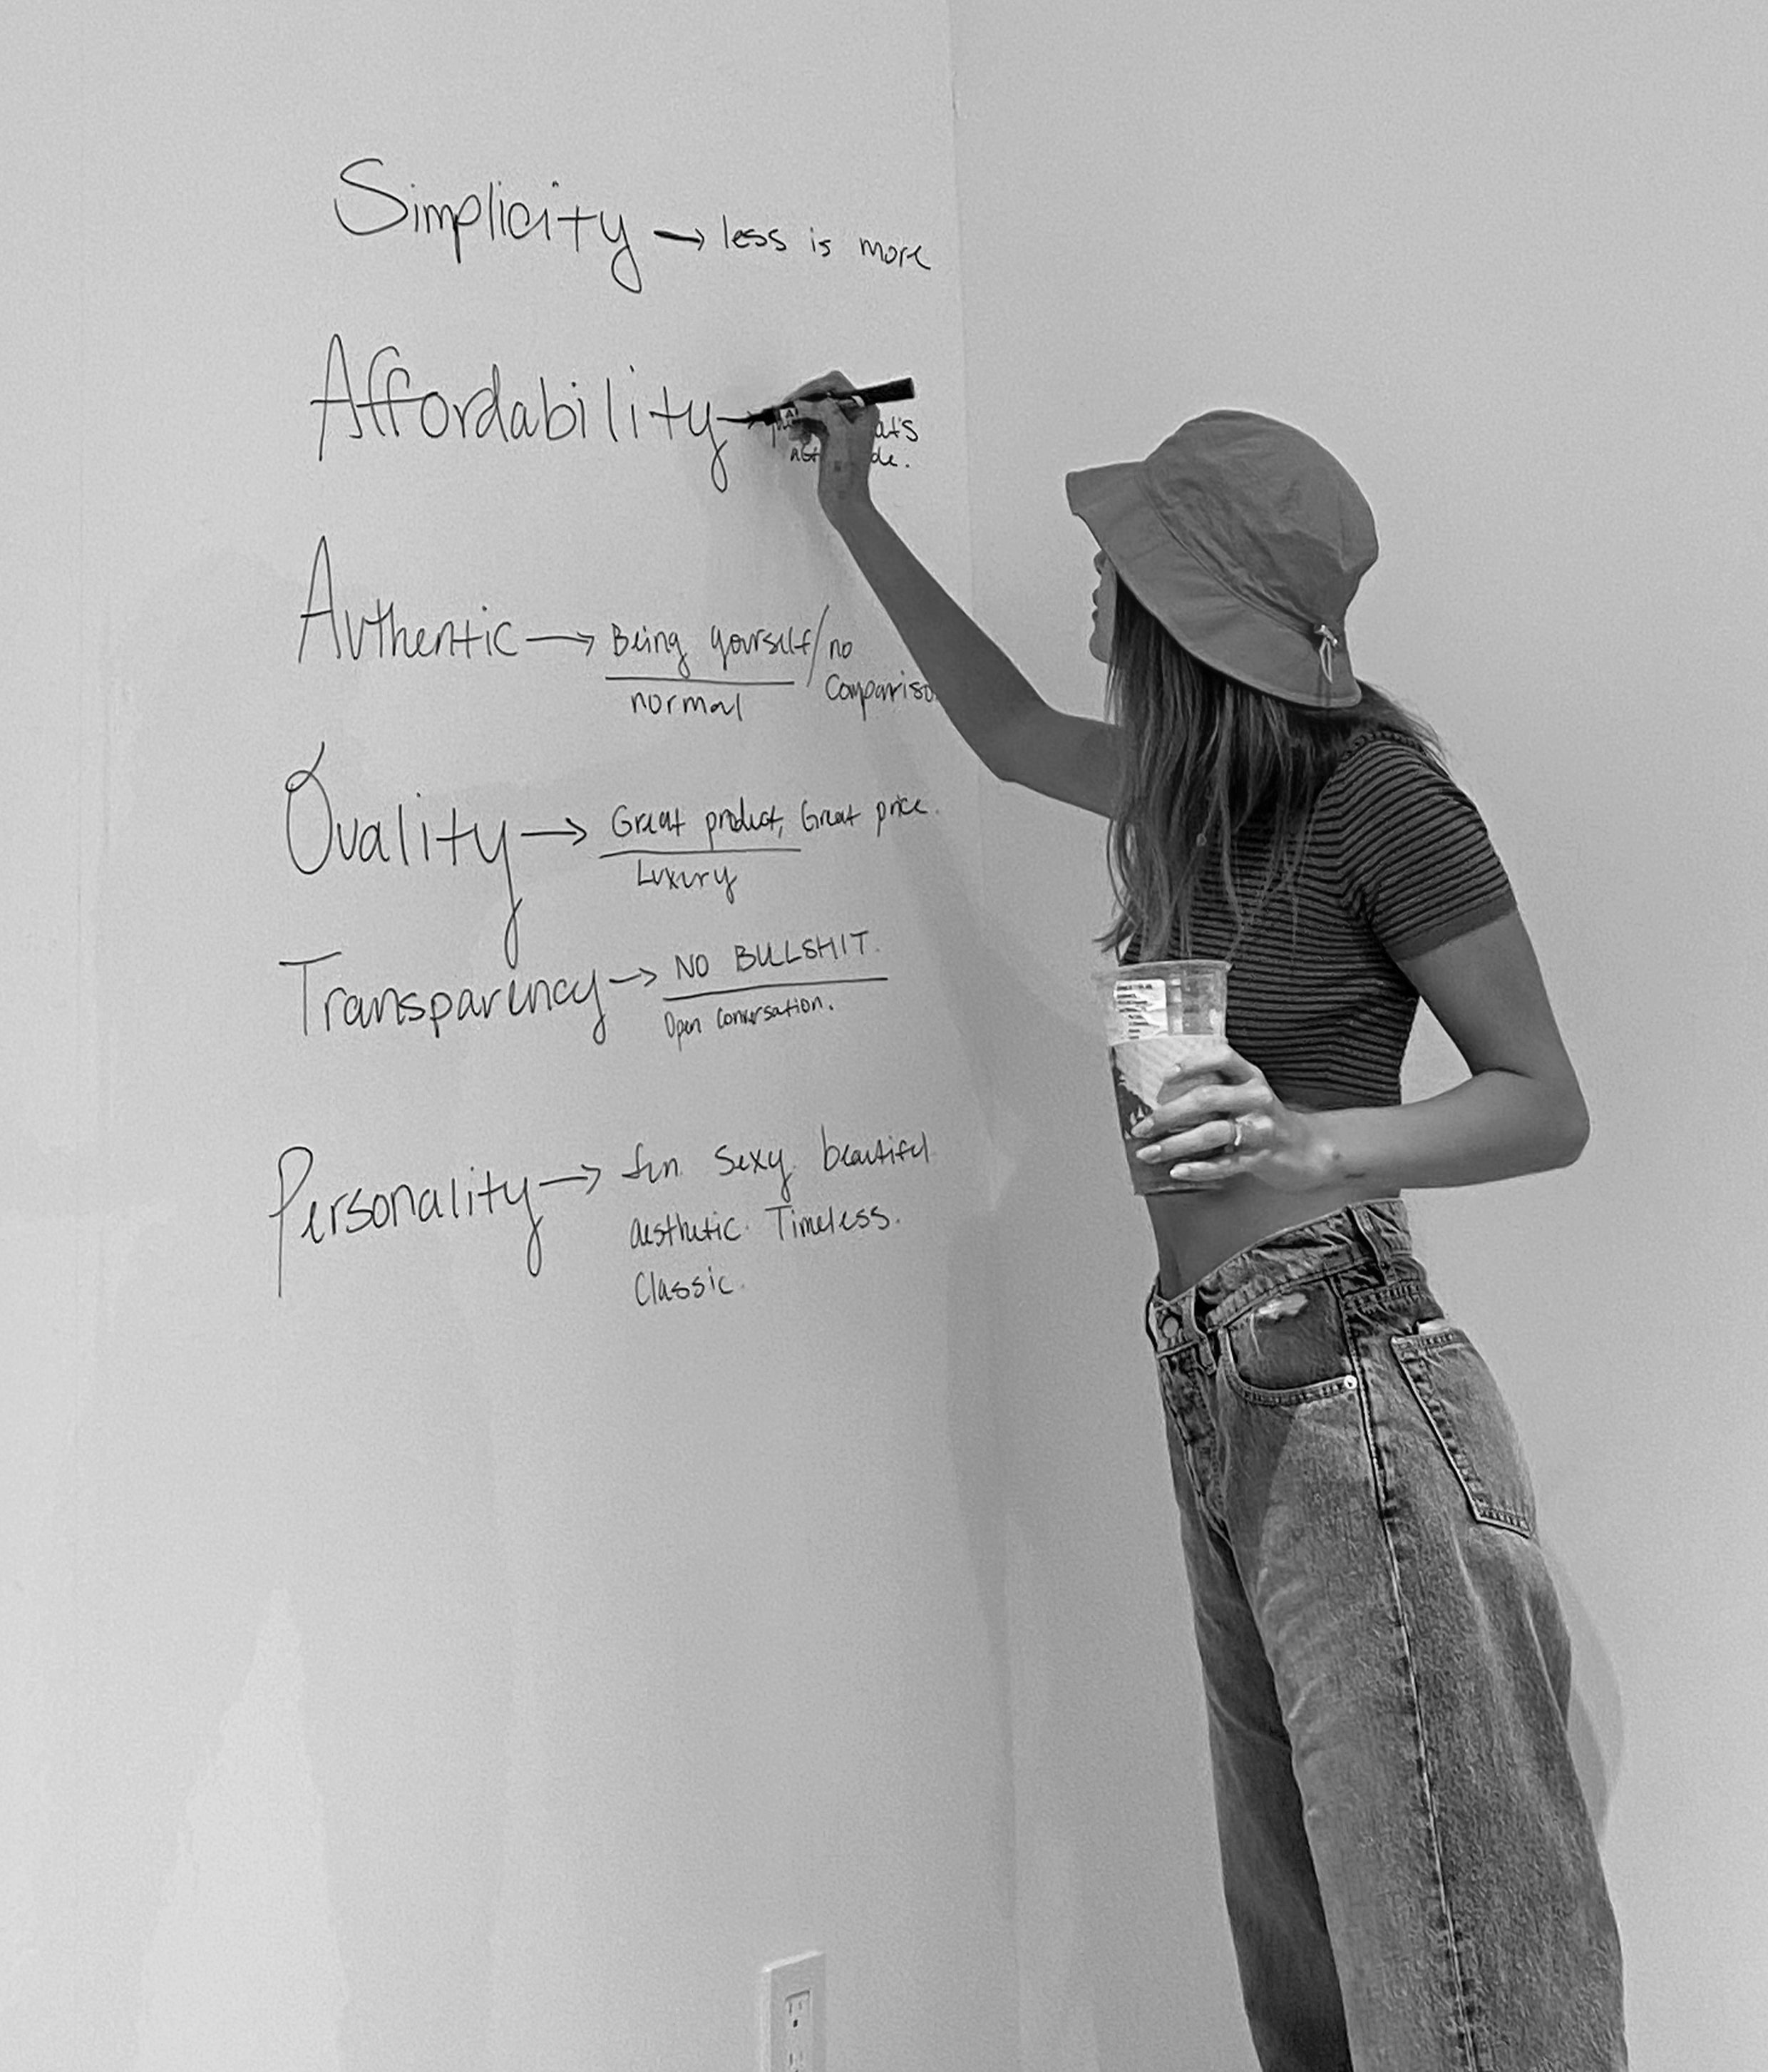 Simplicity → less is more
Affordability →
Authentic → Being yourself/no
normal
Quality → Great product, Great price.
Luxury
Transparency → NO BULLSHIT.
Open Conversation.
Personality → fun. Sexy. beautiful
aesthetic. Timeless.
Classic.